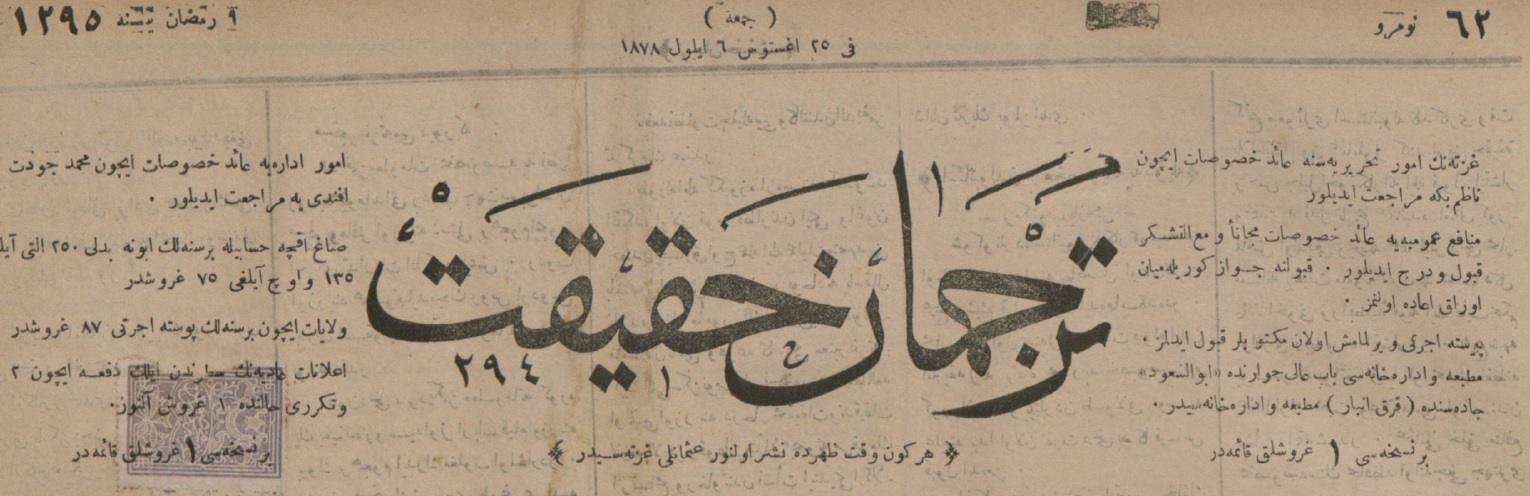 ٦٢ نومرو
( جمعه )
فی ٢٥ اغستوس ٦ ایلول ١٨٧٨
٩ رمضان سنه ١٢٩٥
غزته‌نك امور تحریریه‌سنه عائد خصوصات ایچون
ناظم بكه مراجعت ایدیلور
منافع عمومیه‌یه عائد خصوصات مجاناً و مع التشكر
قبول و درج ایدیلور ٠ قبولنه جواز كوریله‌میان
اوراق اعاده اولنمز ٠
پوسته اجرتی ویرلمامش اولان مكتوبلر قبول ایدلمز ٠
مطبعه و اداره‌خانه‌سی باب عالی جوارنده «ابو السعود»
جاده‌سنده ( قرق انبار ) مطبعه و اداره‌خانه‌سیدر ٠
بر نسخه‌سی ١ غروشلق قائمه‌در
ترجمان حقیقت
٢٩٤ ١
﴿ هر كون وقت ظهرده نشر اولنور عثمانلی غزته‌سیدر ﴾
امور اداره‌یه عائد خصوصات ایچون محمد جودت
افندی یه مراجعت ایدیلور ٠
صاغ اقچه حسابیله برسنه‌لك ابونه بدلی ٢٥٠ التی آیل
١٣٥ و اوچ آیلغی ٧٥ غروشدر
ولایات ایچون برسنه‌لك پوسته اجرتی ٨٧ غروشدر
اعلانات عادیه‌نك سطرندن ایلك دفعه ایچون ٢
وتكرری حالنده ١ غروش آلنور٠
بر نسخه‌سی ١ غروشلق قائمه‌در